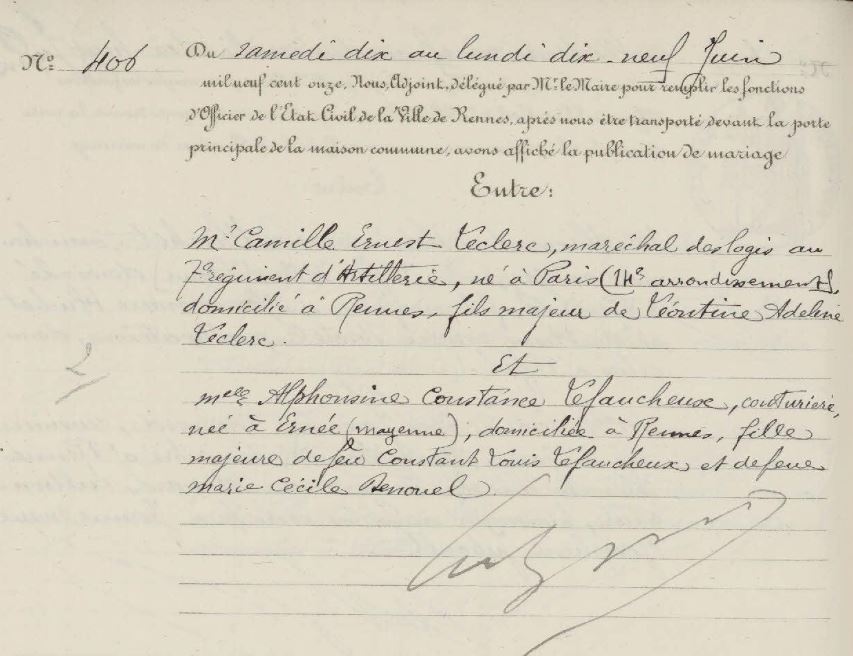 Nº 406 Du samedi dix au lundi dix-neuf Juin
mil neuf cent onze, Nous, Adjoint, délégué par Mr le Maire pour remplir les fonctions
d'Officier de l'État Civil de la Ville de Rennes, après nous être transporté devant la porte
principale de la maison commune, avons affiché la publication de mariage
Entre:
Mr Camille Ernest Leclerc, maréchal des logis au
7e régiment d'Artillerie, né à Paris (14e arrondissement),
domicilié à Rennes, fils majeur de Léontine Adeline
Leclerc.
Et
Melle Alphonsine Constance Lefaucheux, couturière,
née à Ernée (Mayenne), domiciliée à Rennes, fille
majeure de feu Constant Louis Lefaucheux et de feue
Marie Cécile Renouel.
2